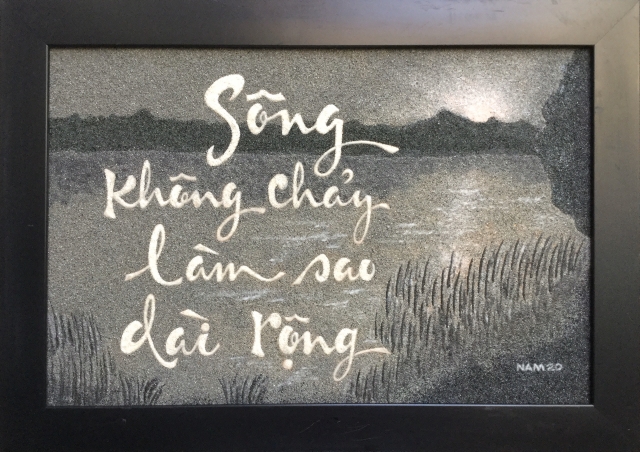 Sông
không chảy
làm sao
dài rộng
NAM 20